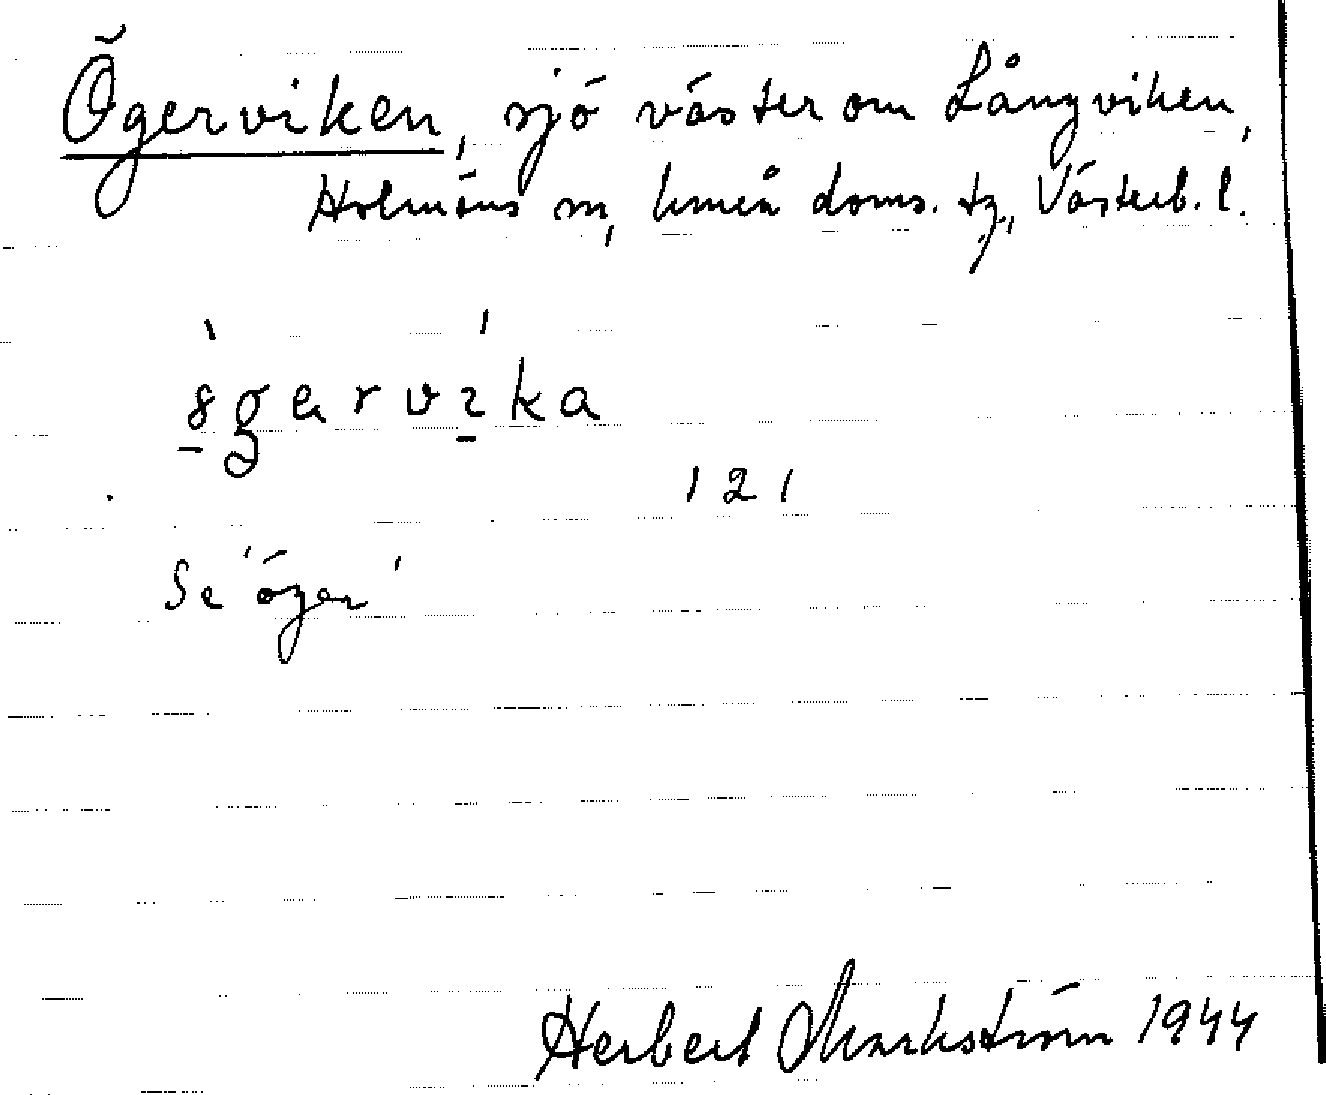 Ögerviken, sjö väster om Långviken,
Holmöns sn, Umeå doms. tg, Västerb. l.
gervika
121
Se 'öger'
Herbert Markström 1944